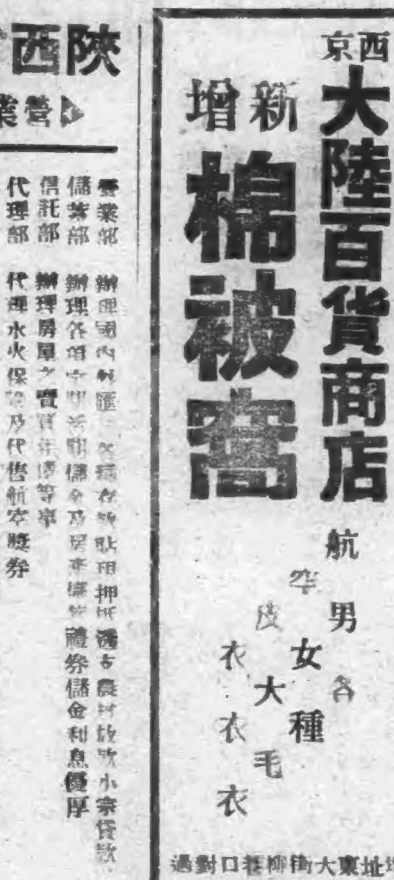 西京
大陸百貨商店
新增
棉被窩
航空皮衣
男女大衣
各種毛衣
址東大街柳巷口對過
陝西
營業
營業部 辦理國內外匯 各種存款貼現押 透支農村放款小宗貸款
儲蓄部 辦理各項定期活期儲金及房產 禮券儲金利息優厚
信託部 辦理房單之賣買 等事
代理部 代理水火保險及代售航空獎券